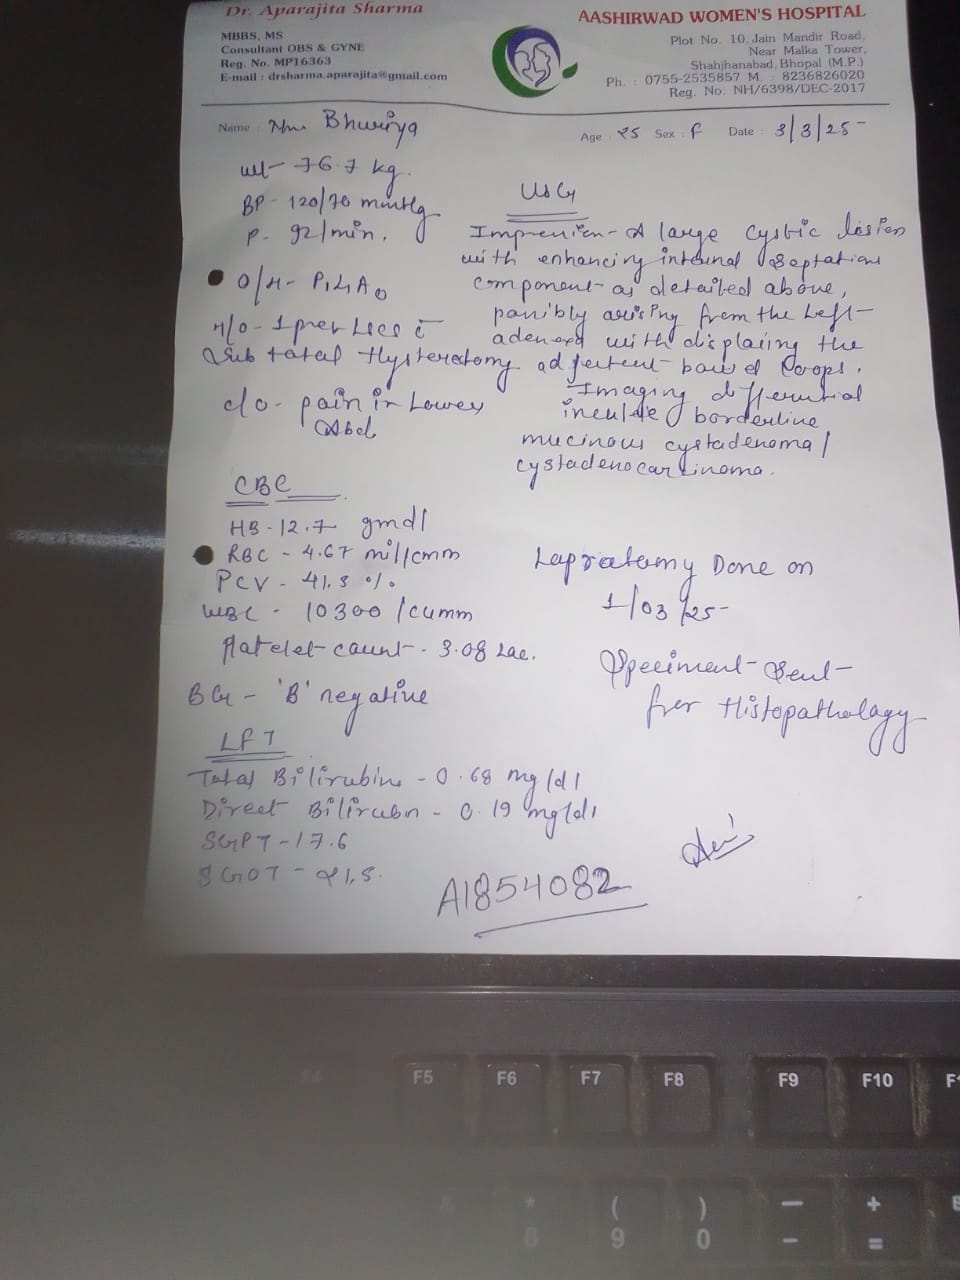 Dr. Aparajita Sharma
MBBS, MS
Consultant OBS & GYNE
Reg. No. MP16363
E-mail : drsharma.aparajita@gmail.com
AASHIRWAD WOMEN'S HOSPITAL
Plot No. 10, Jain Mandir Road,
Near Malka Tower,
Shahjhanabad, Bhopal (M.P.)
Ph. : 0755-2535857 M. : 8236826020
Reg. No. NH/6398/DEC-2017
Name : Bhuriya
Age : 25 Sex : F Date : 3/3/25
wt- 76.7 kg.
BP- 120/70 mmHg
P- 92/min.
O/H- P1L1A0
H/O- 1 prev LSCS c̄
Sub total Hysterectomy
c/o - pain in Lower
Abd
USG
Impression- A large cystic lesion
with enhancing internal septations
component as detailed above,
possibly arising from the Left
adenexa with displacing the
adjecent bowel loops.
Imaging differntial
include borderline
mucinous cystadenoma/
cystadenocarcinoma.
CBC
HB- 12.7 gmdl
RBC - 4.67 mil/cmm
PCV - 41.3 %
WBC - 10300 /cumm
Platelet count - 3.08 Lac.
BG - 'B' negative
LFT
Total Bilirubin - 0.68 mg/dl
Direct Bilirubn - 0.19 mg/dl
SGPT - 17.6
SGOT - 21.5.
Lapratomy Done on
1/03/25
Speciment Sent
for Histopathology
A1854082
F5 F6 F7 F8 F9 F10
* ( ) — +
8 9 0 - =